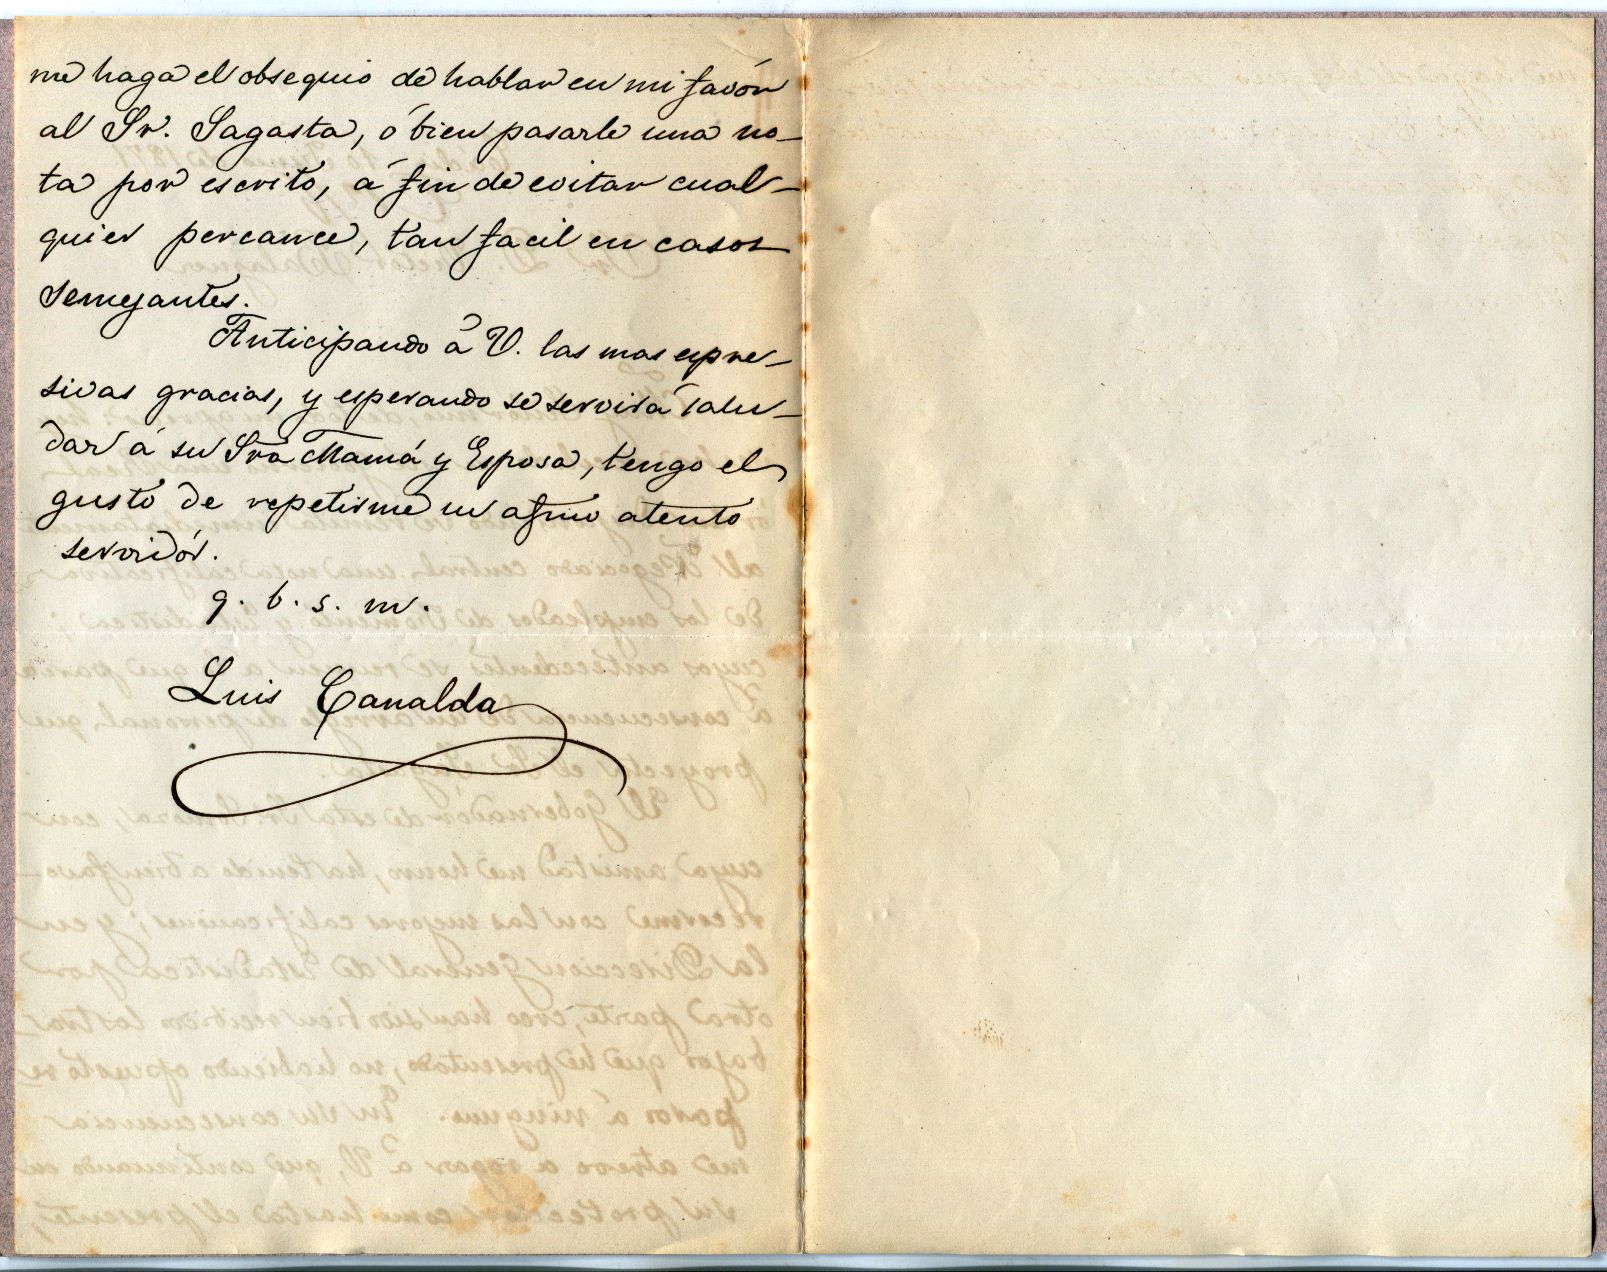 me haga el obsequio de hablar en mi favór
al Sr. Sagasta, ó bien pasarle una no-
ta por escrito, á fin de evitar cual-
quier percance, tan facil en casos
semejantes.
Anticipando á V. las mas expre-
sivas gracias, y esperando se servirá salu-
dar á su Sra Mamá y Esposa, tengo el
gusto de repetirme su afmo atento
servidór.
q. b. s. m.
Luis Canalda